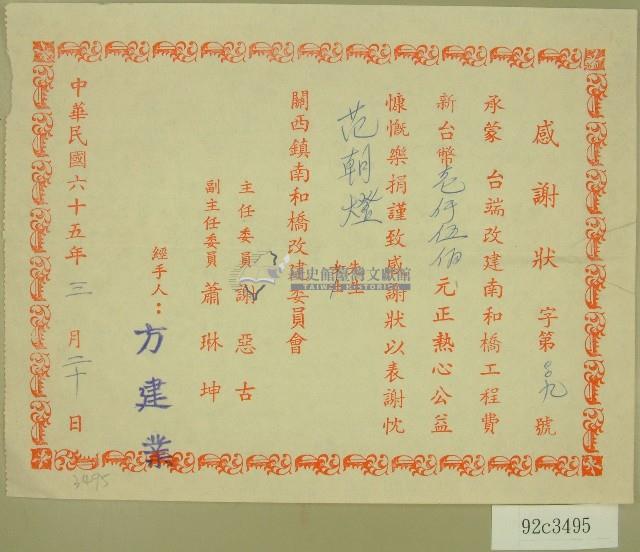 感謝狀 字第００九號
承蒙 台端改建南和橋工程費
新台幣壱仟伍佰元正熱心公益
慷慨樂捐謹致感謝狀以表謝忱
范朝燈 先生
關西鎮南和橋改建委員會
主任委員 謝惡古
副主任委員 蕭琳坤
經手人：方建業
中華民國六十五年三月二十日
國史館臺灣文獻館
TAIWAN HISTORICA
3495
92c3495